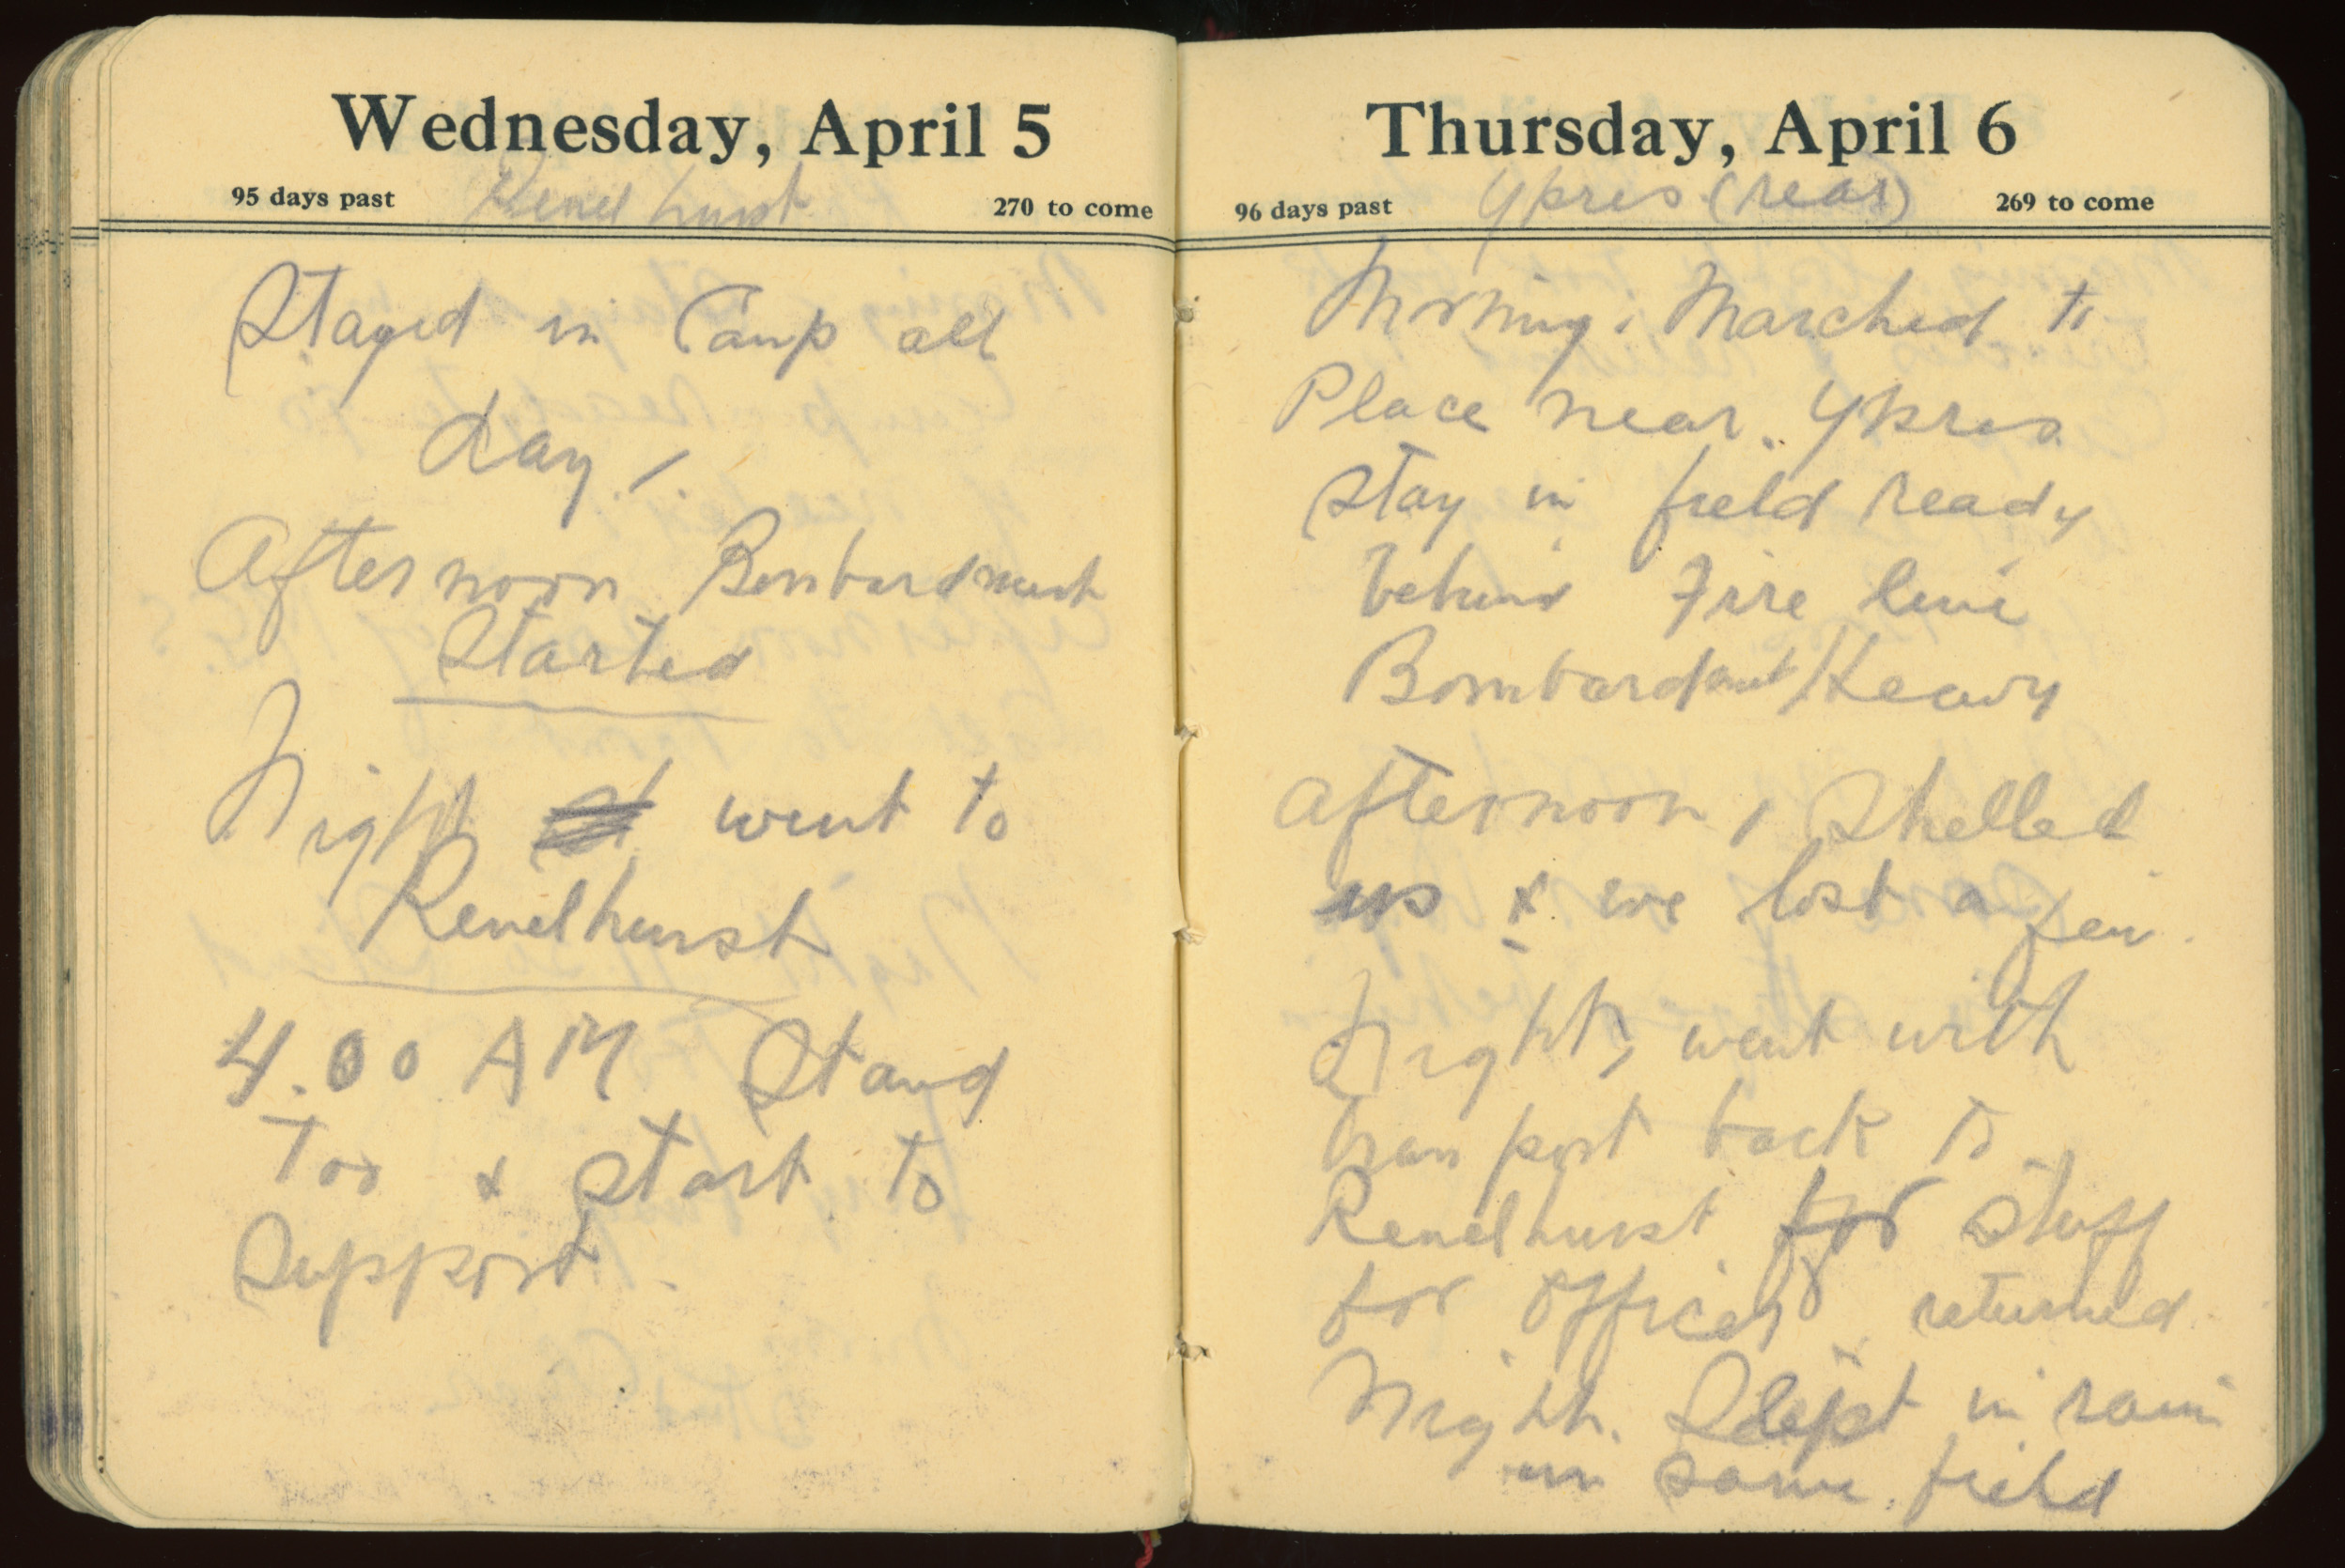 Wednesday, April 5
95 days past Renelhurst 270 to come
Staged in Camp all
day.
Afternoon Bombardment
Started
Night went to
Renelhurst
4.00 AM Stand
Too & start to
Support.
Thursday, April 6
96 days past Ypres (rear) 269 to come
Morning. Marched to
Place near. Ypres
Stay in field ready
behind Fire line
Bombardment Heavy
afternoon, Shelled
us & we lost a few.
Night, went with
transport back to
Renelhurst for stuff
for Officers returned
Night. Slept in rain
in same field